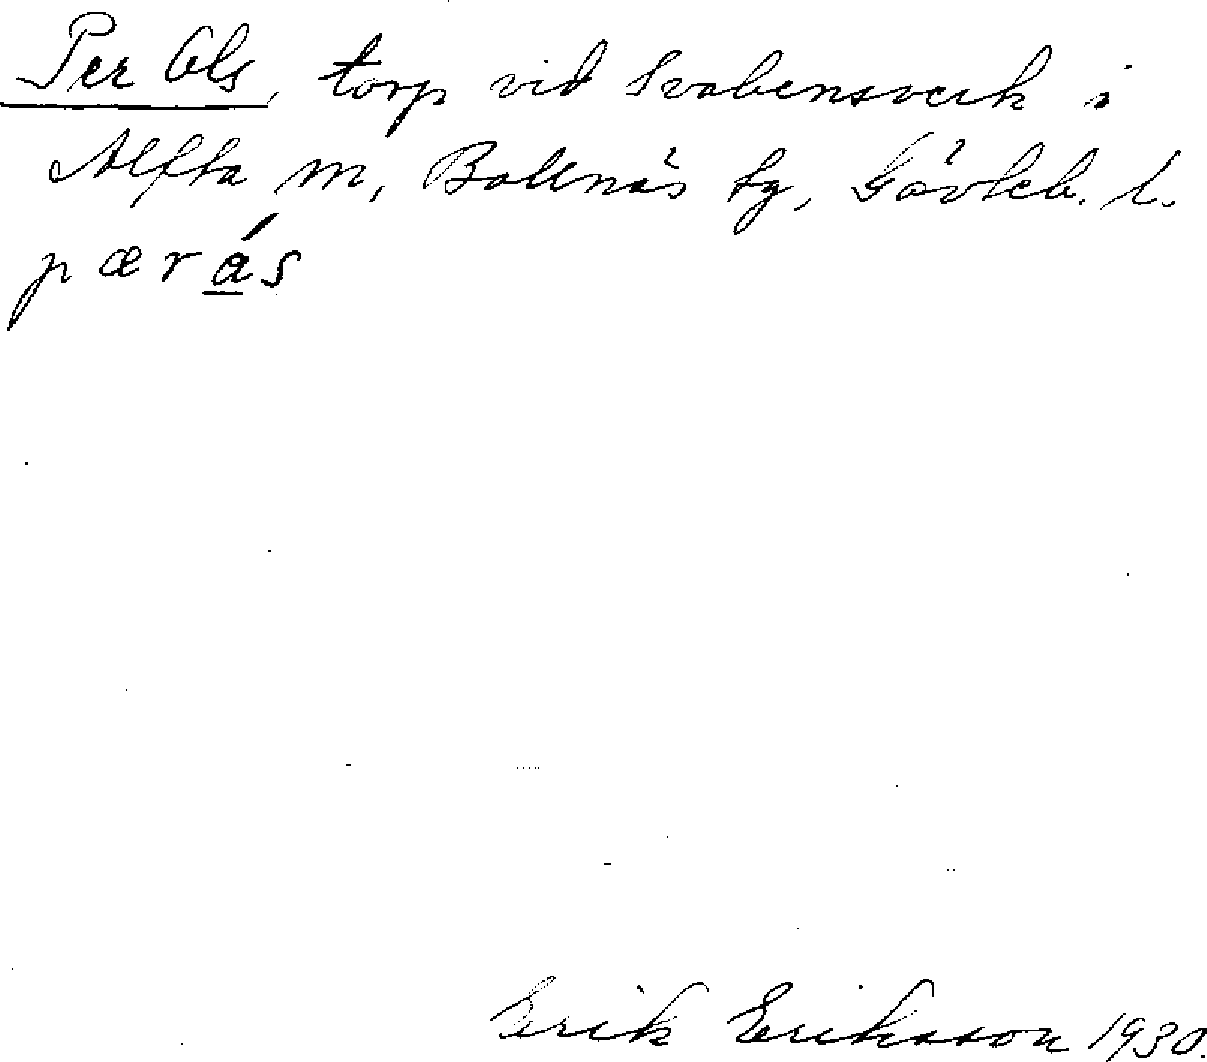 Per Ols, torp vid Svabensverk i
Alfta sn, Bollnäs tg, Gävleb. l.
pærás
Erik Eriksson 1930.